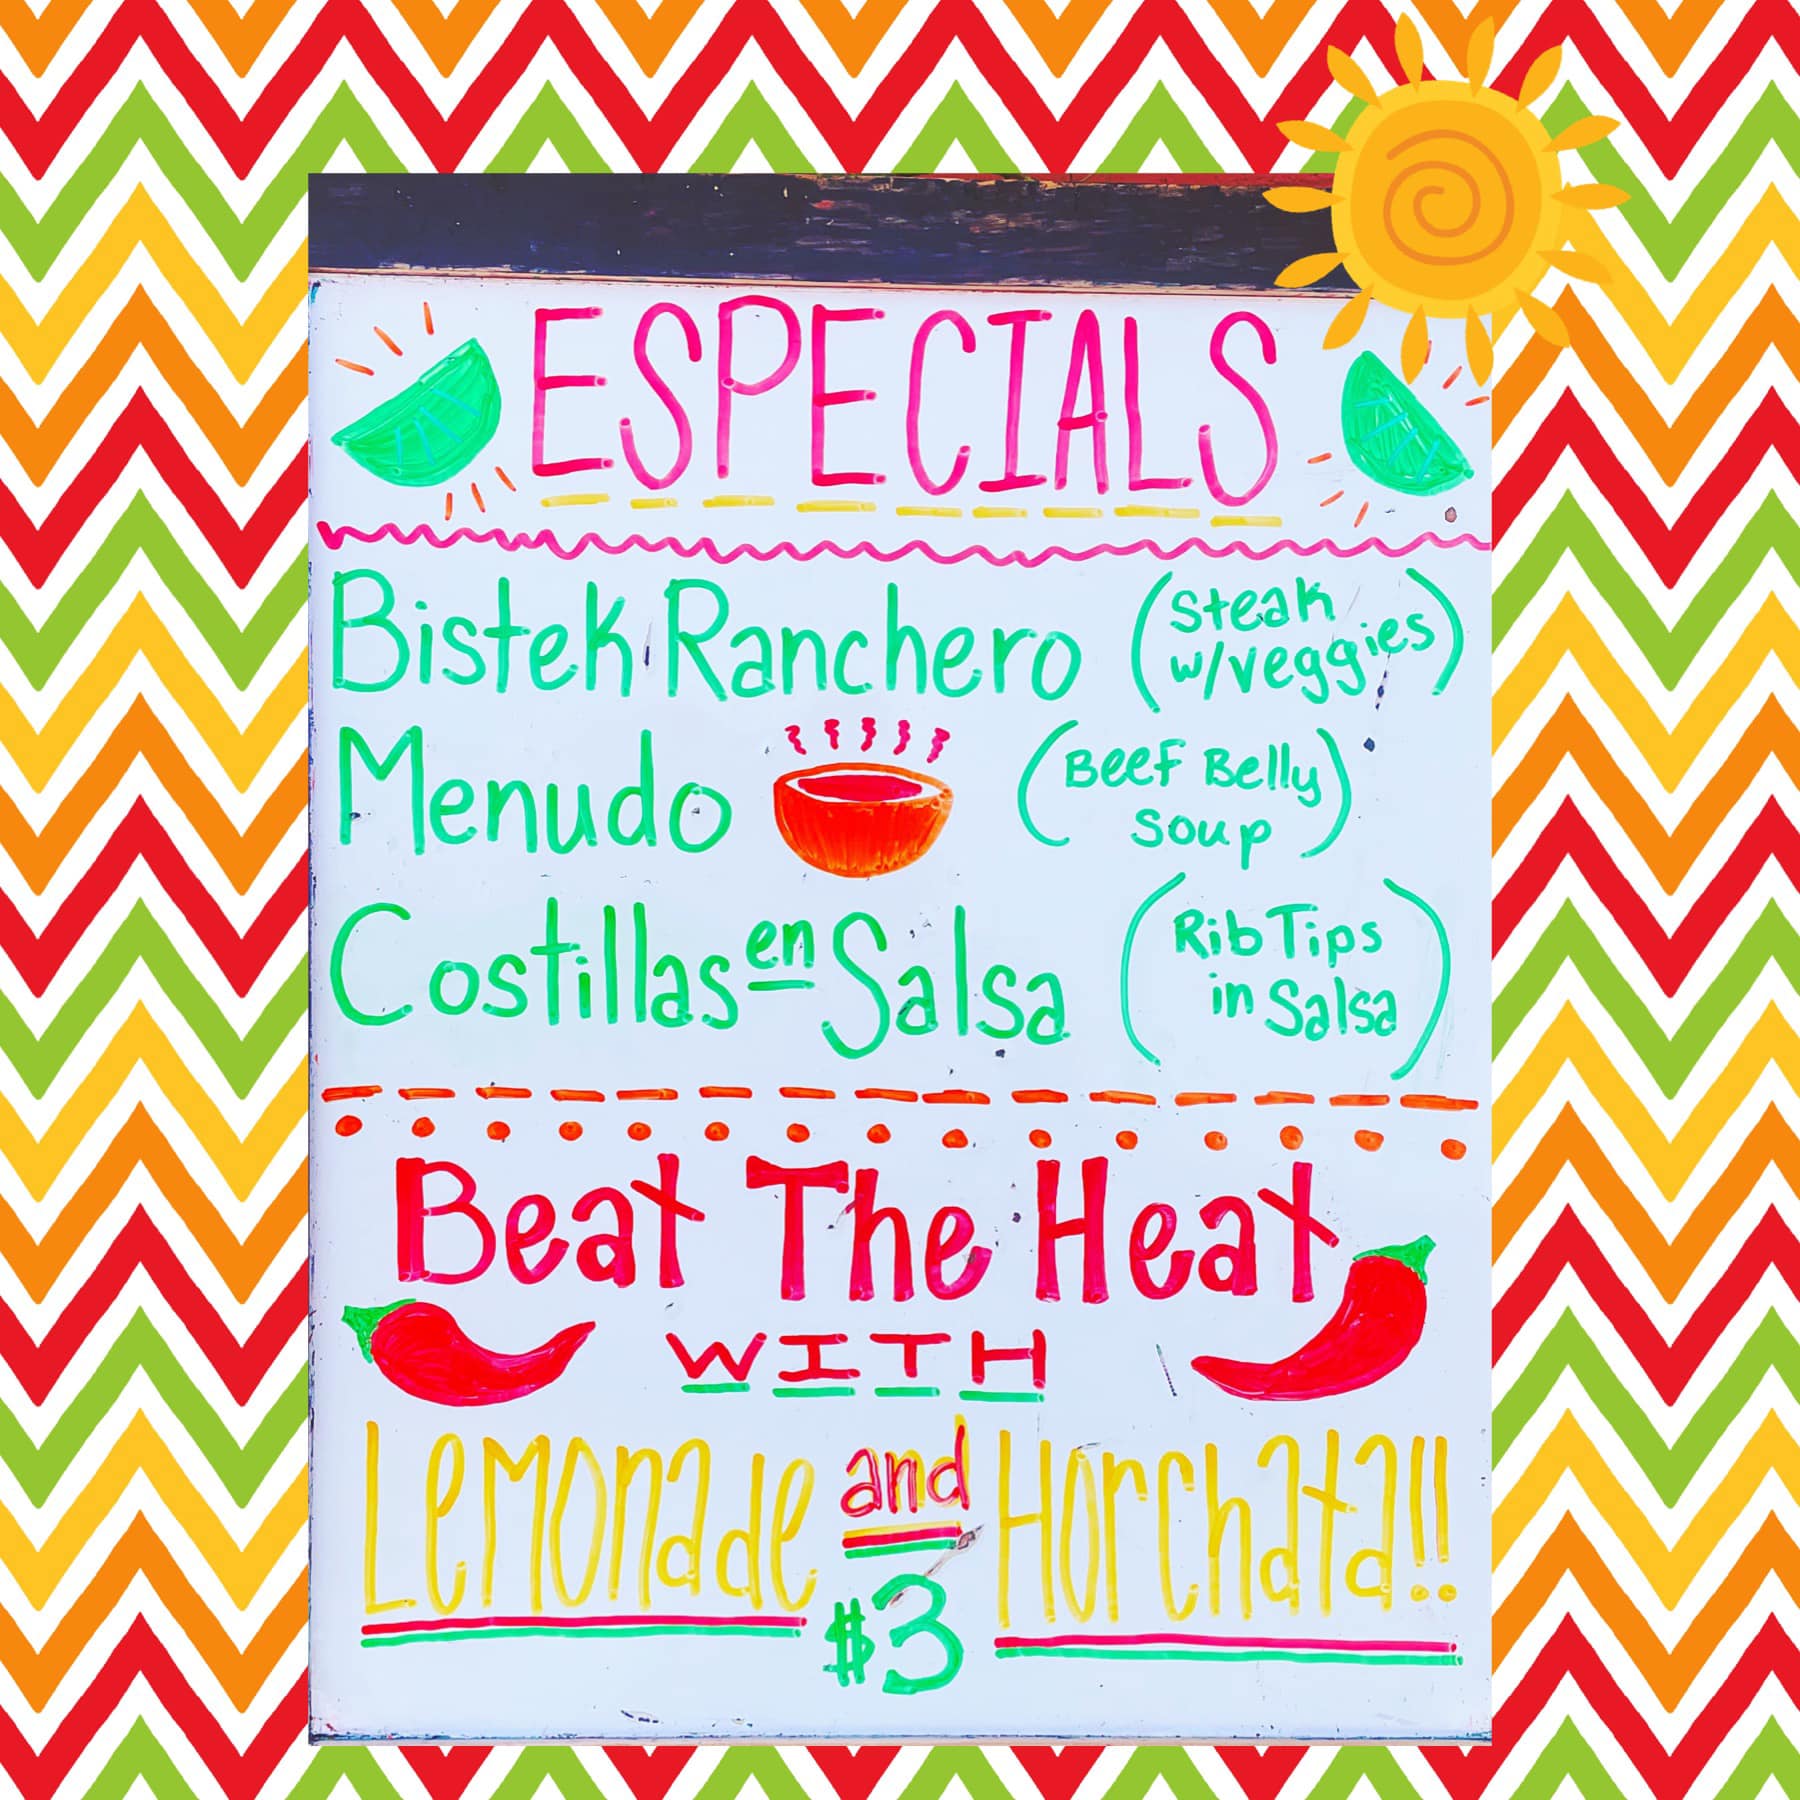 ESPECIALS
Bistek Ranchero (Steak
w/veggies)
Menudo (Beef Belly
Soup)
Costillas en Salsa (Rib Tips
in Salsa)
Beat The Heat
WITH
Lemonade and Horchata!!
$3